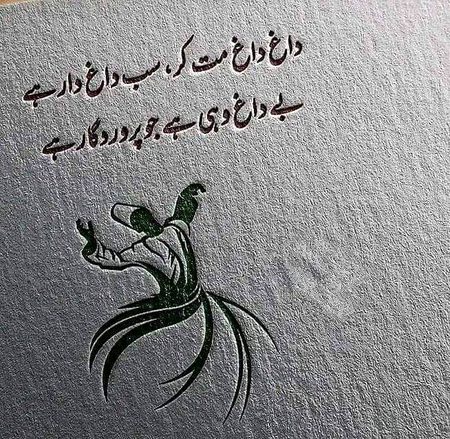 داغ داغ مت کر، سب داغ دار ہے
بے داغ وہی ہے جو پروردگار ہے